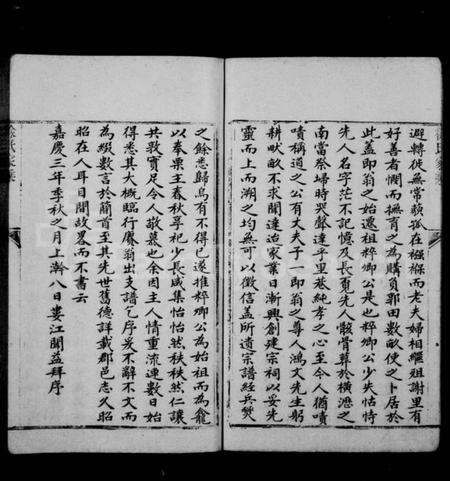 避轉徙無常願孤在襁褓而老夫婦相繼殂謝里有
好善者憫而撫育之為購負郭田數畝使之卜居於
此蓋即翁之始遷祖粹卿公是也粹卿公少失怙恃
先人名字茫不記憶及長覓先人骸骨葬於橫涇之
南當祭埽時哭聲達乎里巷純孝之心至令人猶嘖
嘖稱道之公有丈夫子一即翁之尊人鴻文先生躬
耕畎畝不求聞達治家業日漸興創建宗祠以妥先
靈而上而溯之均無可以徵信蓋所遺宗譜經兵燹
之餘悉歸烏有不得已遂推粹卿公為始祖而為龕
以奉栗主春秋享祀少長咸集怡怡然秩秩然仁讓
共敦實足令人敬慕也余因主人情重流連數日始
得悉其大概臨行賡翁出支譜乞序爰不辭不文而
為綴數言於簡首至其先世舊德詳載郡邑志久昭
昭在人耳目間故畧而不書云
嘉慶三年季秋之月上澣八日婁江聞益拜序